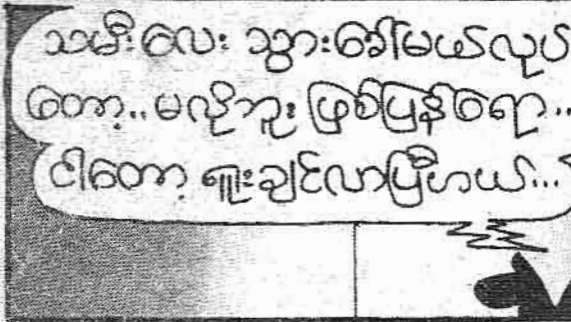 သမီးလေး သွားခေါ်မယ်လုပ်
တော့.. မလိုဘူး ဖြစ်ပြန်ရော..
ငါတော့ ရူးချင်လာပြီဟယ်...